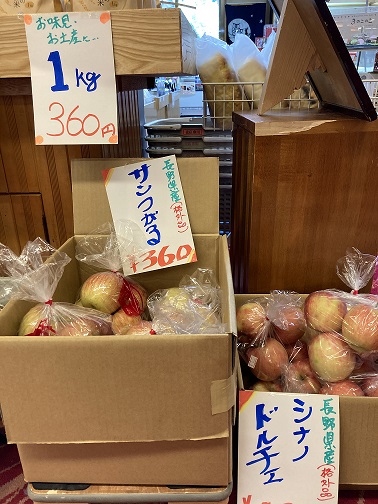 お味見・
お土産に…
1kg
360円
長野県産(格外品)
サンつがる
¥360
長野県産(格外品)
シナノ
ドルチェ